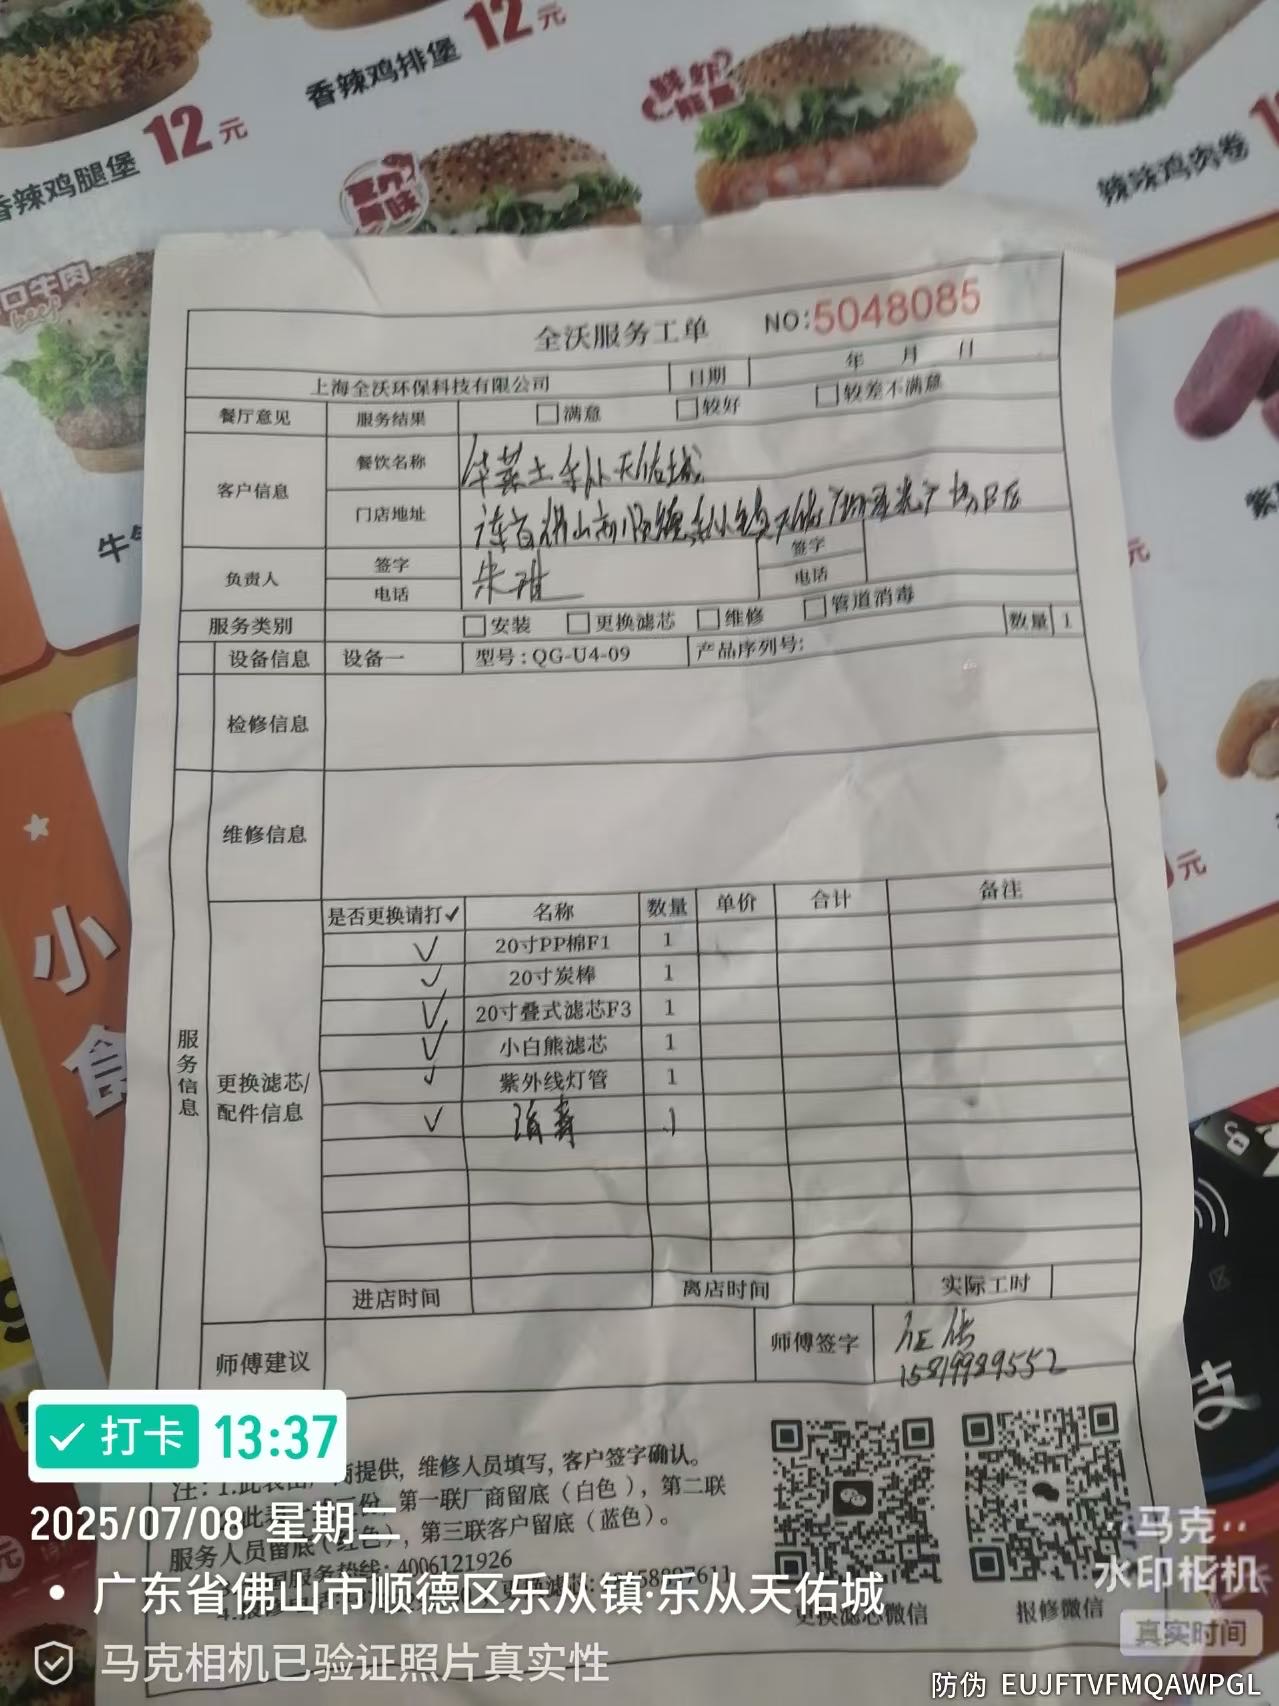 12元
香辣鸡排堡
12元
香辣鸡腿堡
鲜虾
辣味鸡肉卷
口牛肉
beef
全沃服务工单 NO:5048085
上海全沃环保科技有限公司 日期 年 月 日
餐厅意见 服务结果 □满意 □较好 □较差不满意
客户信息 餐饮名称 华莱士乐从天佑城
门店地址
负责人 签字 朱 签字
电话 电话
服务类别 □安装 □更换滤芯 □维修 □管道消毒
设备信息 设备一 型号:QG-U4-09 产品序列号: 数量 1
检修信息
维修信息
服务信息
更换滤芯/配件信息
是否更换请打✓ 名称 数量 单价 合计 备注
✓ 20寸PP棉F1 1
✓ 20寸炭棒 1
✓ 20寸叠式滤芯F3 1
✓ 小白熊滤芯 1
✓ 紫外线灯管 1
✓ 消毒 1
进店时间 离店时间 实际工时
师傅建议 师傅签字
15819989552
商提供, 维修人员填写, 客户签字确认。
份, 第一联厂商留底(白色), 第二联
服务人员留底(红色), 第三联客户留底(蓝色)。
服务热线: 4006121926
更换滤芯微信 报修微信
小食
元
元
支
打卡 13:37
2025/07/08 星期二
• 广东省佛山市顺德区乐从镇·乐从天佑城
马克相机已验证照片真实性
马克
水印相机
真实时间
防伪 EUJFTVFMQAWPGL